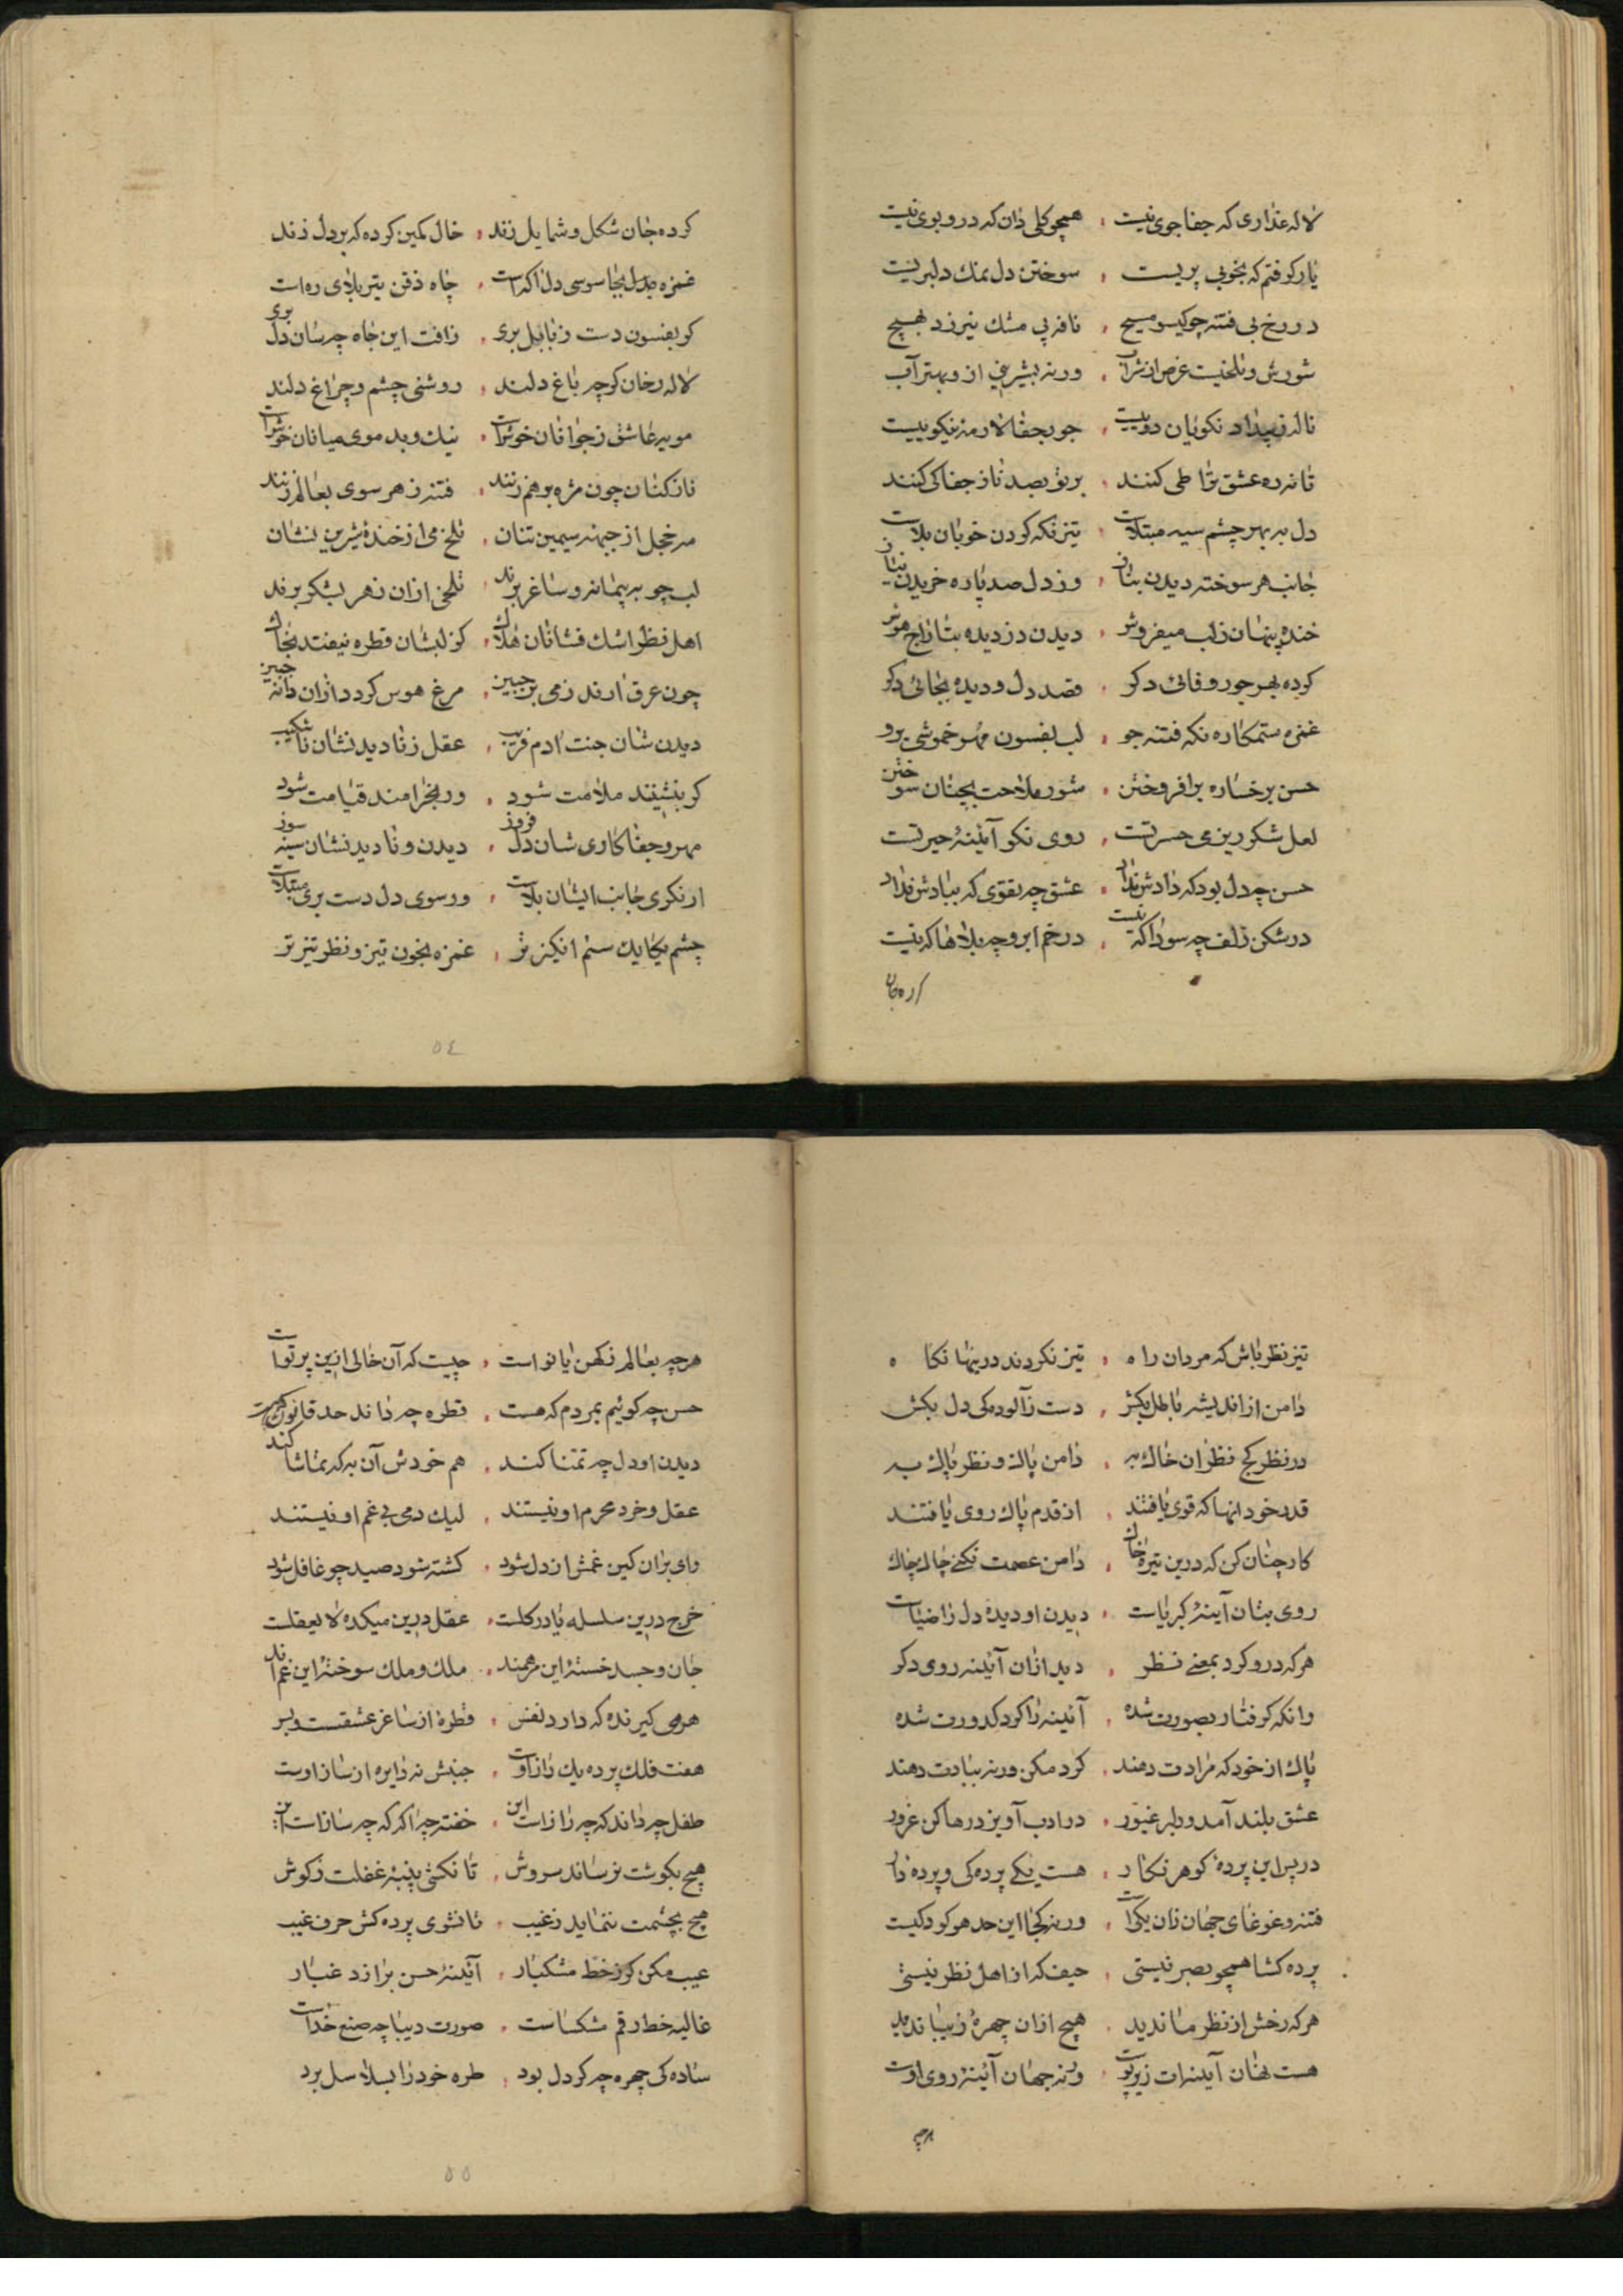 لاله عذاری که جفا جوی نیست ؛ همچو کلی دان که درو بوی نیست
یار کرفتم که بخوبی پریست ؛ سوختن دل نمک دلبریست
در رخ بی فتنه چو کیسو مپیچ ؛ نافه بی مشک نیرزد بهیچ
شورش و تلخیست غرض از شراب ؛ ورنه بشیرینی ازو بهتر آب
ناله ز بیداد نکویان دوییست ؛ جور بجفا لازمه نیکوییست
تا نه ره عشق ترا طی کنند ؛ بر تو بصد ناز جفا کی کنند
دل به بهر چشم سیه مبتلاست ؛ تیز نکه کردن خوبان بلاست
جانب هر سوخته دیدن بناز ؛ وز دل صد پاره خریدن نیاز
خنده پنهان ز لب میفروش ؛ دیدن دزدیده بتاراج هوش
کرده بهر جور وفائی دکر ؛ قصد دل و دیده بجائی دکر
غمزه ستمکاره نکه فتنه جو ؛ لب بفسون مهر خموشی برو
حسن برخساره برافروختن ؛ شور ملاحت بچنان سوختن
لعل شکر ریز می حسرتست ؛ روی نکو آئینهٔ حیرتست
حسن چه دل بود که دادش نداد ؛ عشق چه تقوی که ببادش نداد
در شکن زلف چه سودا که نیست ؛ در خم ابرو چه بلاها که نیست
کرده جان
کرده جان شکل و شمایل زند ؛ خال کمین کرده که بر دل زند
غمزه بدل بجاسوسی دل آکه است ؛ چاه ذقن تیر بلای ره است
کر بفسون دست ز بابل بری ؛ زافت این جاه چه سان دل بری
لاله رخان کرچه باغ دلند ؛ روشنی چشم و چراغ دلند
مویه عاشق ز جوانان خوشست ؛ نیک و بد موی میانان خوشست
ناز کنان چون مژه بر هم زنند ؛ فتنه ز هر سوی بعالم زنند
مه خجل از جبهه سیمین تنان ؛ تلخ می از خنده شیرین نشان
لب چو به پیمانه و ساغر برند ؛ تلخی ازان زهر بشکر برند
اهل نظر اشک فشانان هلاک ؛ کز لبشان قطره نیفتد بخاک
چون عرق ارند ز می بر جبین ؛ مرغ هوس کردد ازان دانه چین
دیدن شان جنت ادم فریب ؛ عقل ز نادیدنشان ناشکیب
کر بنشینند ملامت شود ؛ ور بخرامند قیامت شود
مهر و جفا کاری شان دل فروز ؛ دیدن و نادیدنشان سینه سوز
ار نکری جانب ایشان بلاست ؛ ور سوی دل دست بری مبتلاست
چشم یکایک ستم انکیز تر ؛ غمزه بخون تیز و نظر تیز تر
٥٤
تیز نظر باش که مردان راه ؛ تیز نکردند درینها نکاه
دامن از اندیشه باطل بکش ؛ دست ز آلوده کی دل بکش
در نظر کج نظران خاک به ؛ دامن پاک و نظر پاک به
قدر خود انها که قوی یافتند ؛ از قدم پاک روی یافتند
کار چنان کن که درین تیره خاک ؛ دامن عصمت نکنی چاک چاک
روی بتان آینهٔ کبریاست ؛ دیدن او دیده دل را ضیاست
هر که درو کرد بمعنی نظر ؛ دید ازان آئینه روی دکر
وانکه کرفتار بصورت شده ؛ آئینه را کرد کدورت شده
پاک از خود که مرادت دهند ؛ کرد مکن ورنه ببادت دهند
عشق بلند آمد و دلبر غیور ؛ در ادب آویز و رها کن غرور
در پس این پردهٔ کوهر نکار ؛ هست یکی پرده کی و پرده دار
فتنه و غوغای جهان زان یکیست ؛ ورنه کجا این حد هر کودکیست
پرده کشا همچو بصر نیستی ؛ حیف که از اهل نظر نیستی
هر که رخش از نظر ما ندید ؛ هیچ ازان چهرهٔ زیبا ندید
هست نهان آینه ات زیر پوست ؛ ورنه جهان آئینهٔ روی اوست
هرچه
هرچه بعالم ز کهن یا نو است ؛ چیست که آن خالی ازین پرتو است
حسن چه کوئیم بمردم که هست ؛ قطره چه داند حد قانون که هست
دیدن او دل چه تمنا کند ؛ هم خودش آن به که تماشا کند
عقل و خرد محرم او نیستند ؛ لیک دمی بی غم او نیستند
وای بران کین غمش از دل شود ؛ کشته شود صید چو غافل شود
خرج درین سلسله پا در کلست ؛ عقل درین میکده لا یعقلست
جان و جسد خستهٔ این مرهمند ؛ ملک و ملک سوختهٔ این غم اند
هر می کیرنده که دارد نفس ؛ قطرهٔ از ساغر عشقست و بس
هفت فلک پرده یک راز اوست ؛ جنبش نه دایره از ساز اوست
طفل چه داند که چه راز است این ؛ خفته چه آکه که چه ساز است این
هیچ بکوشت نرساند سروش ؛ تا نکشی پنبهٔ غفلت ز کوش
هیچ بچشمت ننماید ز غیب ؛ تا نشوی پرده کش حرف عیب
عیب مکن کز خط مشکبار ؛ آئینهٔ حسن برارد غبار
غالیه خط رقم مشکساست ؛ صورت دیباچه صنع خداست
ساده کی چهره چه کر دل بود ؛ طره خود را بسلاسل برد
٥٥